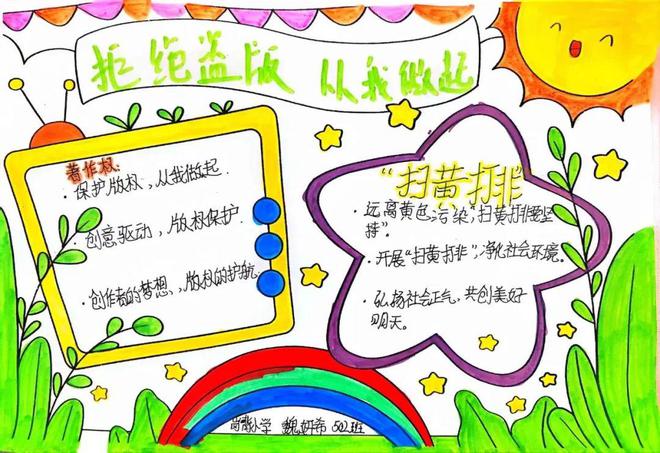 拒绝盗版 从我做起
著作权:
·保护版权,从我做起.
·创意驱动,版权保护.
·创作者的梦想,版权的护航.
"扫黄打非"
·远离黄色污染,"扫黄打非要坚
持".
·开展"扫黄打非",净化社会环境。
·弘扬社会正气,共创美好
明天。
小学 魏妍希 502班